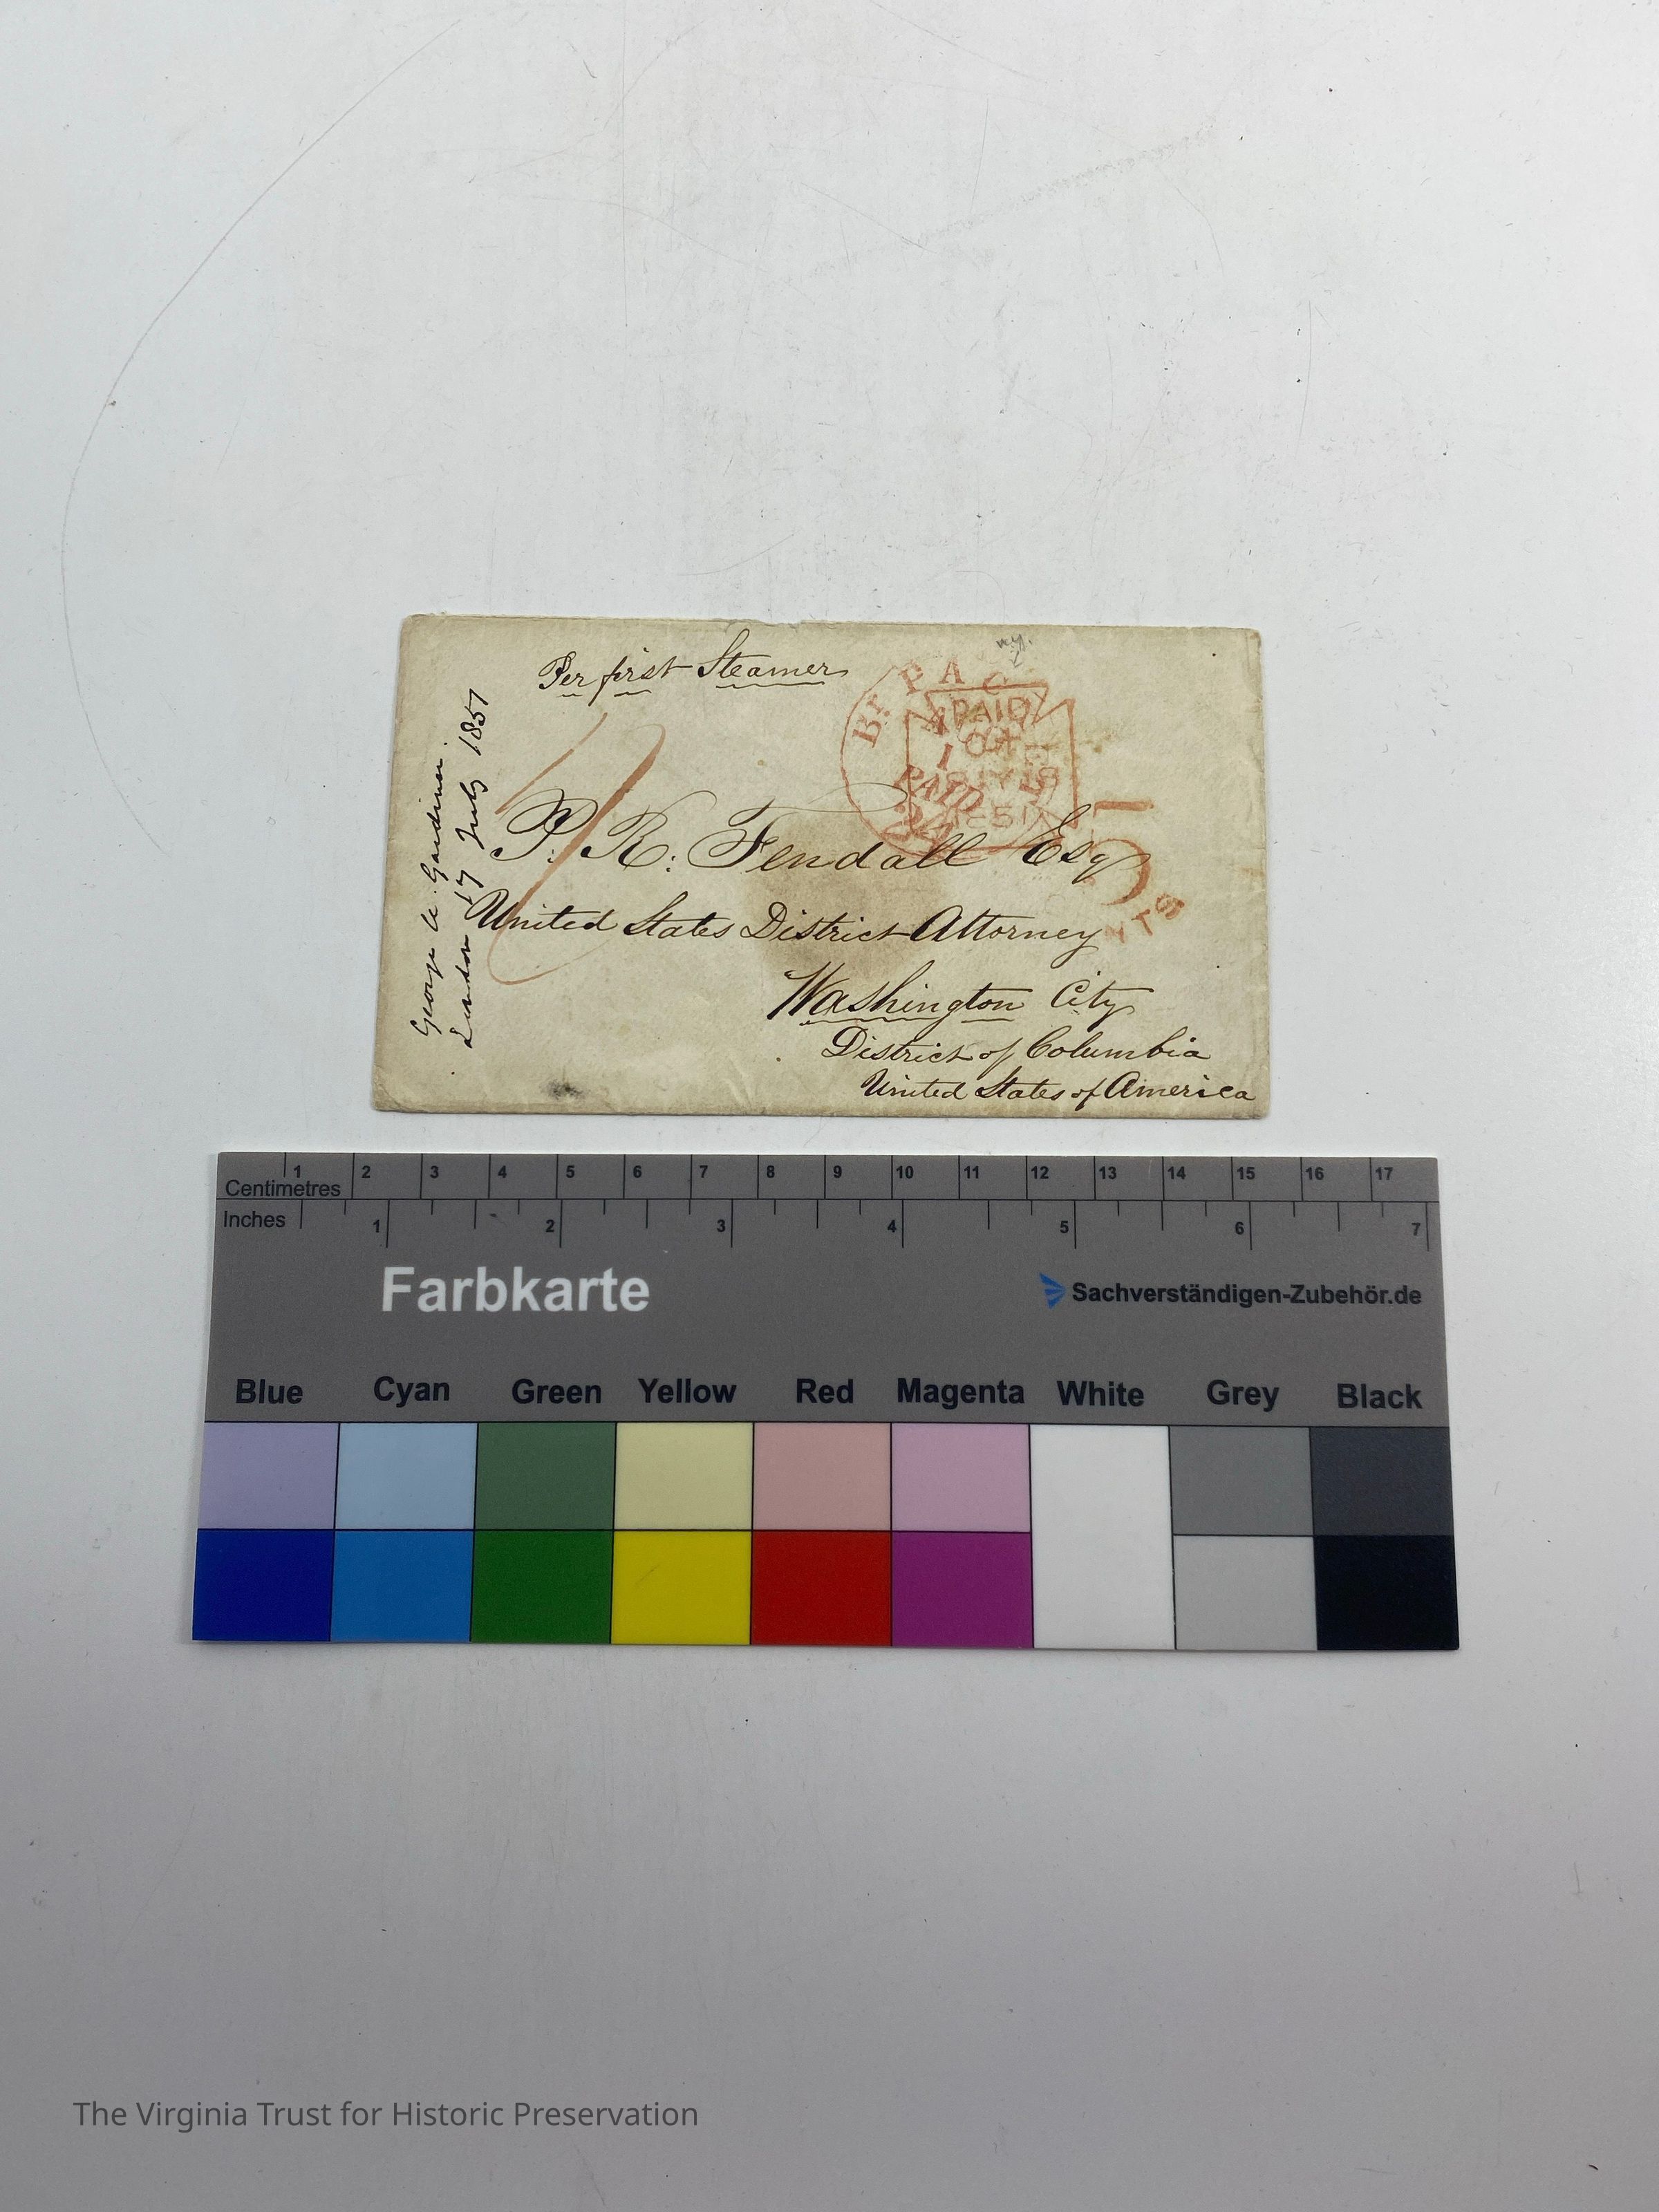 Per first Steamer
P. R. Fendall Esqr
United States District Attorney
Washington City
District of Columbia
United States of America
George A. Gardiner
London 17 July 1851
Br PAC
PAID
PAID
24
Centimetres
1 2 3 4 5 6 7 8 9 10 11 12 13 14 15 16 17
Inches
1 2 3 4 5 6 7
Farbkarte
Sachverständigen-Zubehör.de
Blue Cyan Green Yellow Red Magenta White Grey Black
The Virginia Trust for Historic Preservation